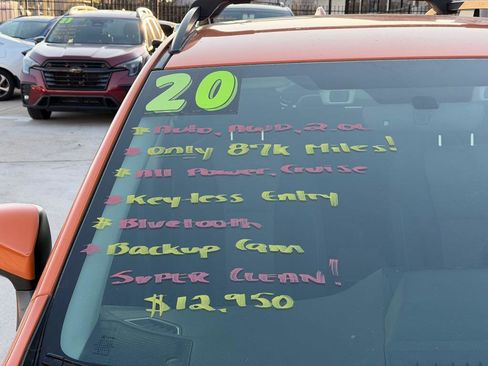 20
* Auto, AWD, 2.0L
* Only 87k Miles!
* All Power, Cruise
* Keyless Entry
* Bluetooth
* Backup Cam
SUPER CLEAN!
$12,950